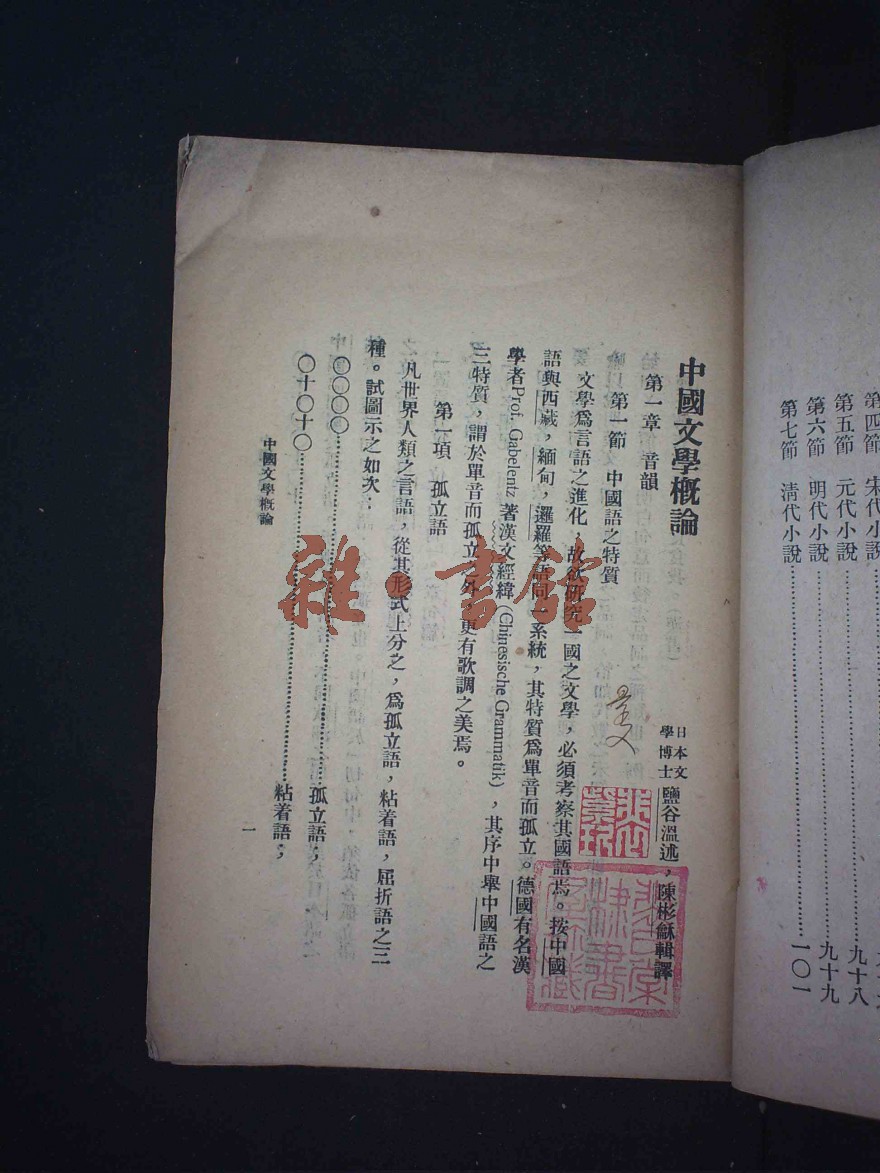 第四節 宋代小說
第五節 元代小說……九十八
第六節 明代小說……九十九
第七節 清代小說……一〇一
中國文學概論
日本文學博士 鹽谷溫述，陳彬龢輯譯
第一章 音韻
第一節 中國語之特質
文學爲言語之進化 故欲研究一國之文學，必須考察其國語焉。按中國
語與西藏，緬甸，暹羅等語同一系統，其特質爲單音而孤立。德國有名漢
學者Prof. Gabelentz 著漢文經緯(Chinesische Grammatik)，其序中舉中國語之
三特質，謂於單音而孤立之外，更有歌調之美焉。
第一項 孤立語
凡世界人類之言語，從其形式上分之，爲孤立語，粘着語，屈折語之三
種。試圖示之如次：
〇〇〇〇……孤立語；
〇十〇十〇……粘着語；
中國文學概論
一
雜·書館